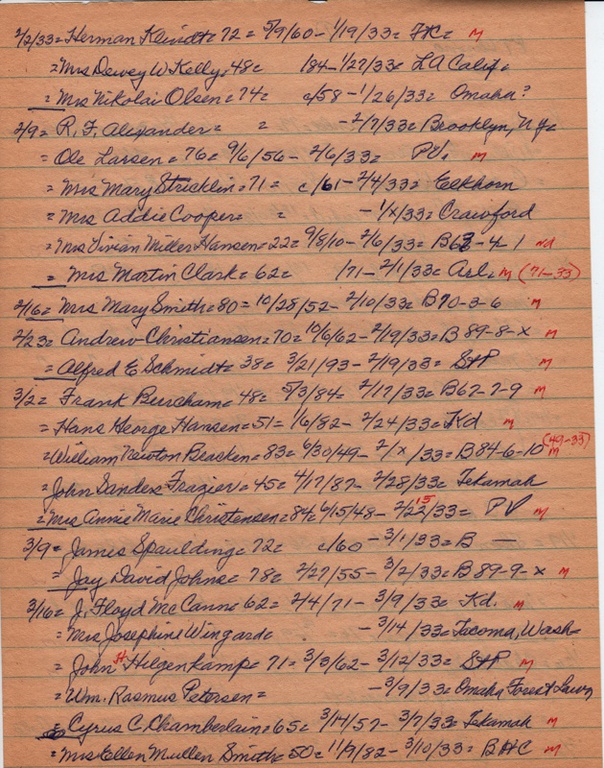 2/2/33= Herman Kleindt= 72= 5/9/60 - 1/19/33= FK= M
= Mrs Dewey W Kelly= 48= 184 - 1/27/33= LA Calif=
= Mrs Nikolai Olsen= 74= c/58 - 1/26/33= Omaha?
2/9= R. F. Alexander= = - 2/7/33= Brooklyn, Ny=
= Ole Larsen= 76= 9/6/56 - 2/6/33= PV= M
= Mrs Mary Stricklin= 71= c/61 - 2/4/33= Elkhorn
= Mrs Addie Cooper= = - 1/x/33= Crawford
= Mrs Vivian Miller Hansen= 22= 9/8/10 - 2/6/33= B68-4-1 Nd
= Mrs Martin Clark= 62= /71 - 2/1/33= Arl= M (71-33)
2/16= Mrs Mary Smith= 80= 10/28/52 - 2/10/33= B70-3-6 M
2/23= Andrew Christiansen= 70= 10/6/62 - 2/19/33= B 89-8-x M
= Alfred E Schmidt= 38= 3/21/93 - 2/19/33= S+P M
3/2= Frank Burcham= 48= 5/3/84= 2/17/33= B67-7-9 M
= Hans George Hansen= 51= 1/6/82 - 2/24/33= Kd M
= William Newton Bracken= 83= 6/30/49 - 2/x/33= B 84-6-10 M (49-33)
= John Sanders Frazier= 45= 4/17/87 - 2/28/33= Tekamah
= Mrs Annie Marie Christensen= 84= 4/15/48 - 2/22/33= 15 PV M
3/9= James Spaulding= 72= c/60 - 3/1/33= B —
= Jay David Johns= 78= 2/27/55 - 3/2/33= B 89-9-x M
3/16= J. Floyd McCann= 62= 2/4/71 - 3/9/33= Kd. M
= Mrs Josephine Wingard= - 3/14/33= Tacoma, Wash=
= John H Hilgenkamp= 71= 3/3/62 - 3/12/33= S+P M
= Wm. Rasmus Petersen= - 3/9/33= Omaha Forest Lawn
= Cyrus C. Chamberlain= 65= 3/14/57 - 3/7/33= Tekamah M
= Mrs Ellen Mullen Smith= 50= 11/9/82 - 3/10/33= BHC M